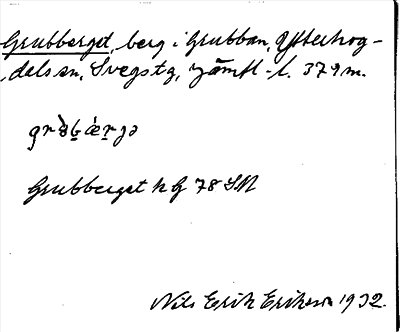 Grubberget, berg i Grubban, Ytterhog-
dals sn, Svegs tg, Jämtl. l. 379 m.
Grubberget h G 78 SM
Nils Erik Erikson 1932.